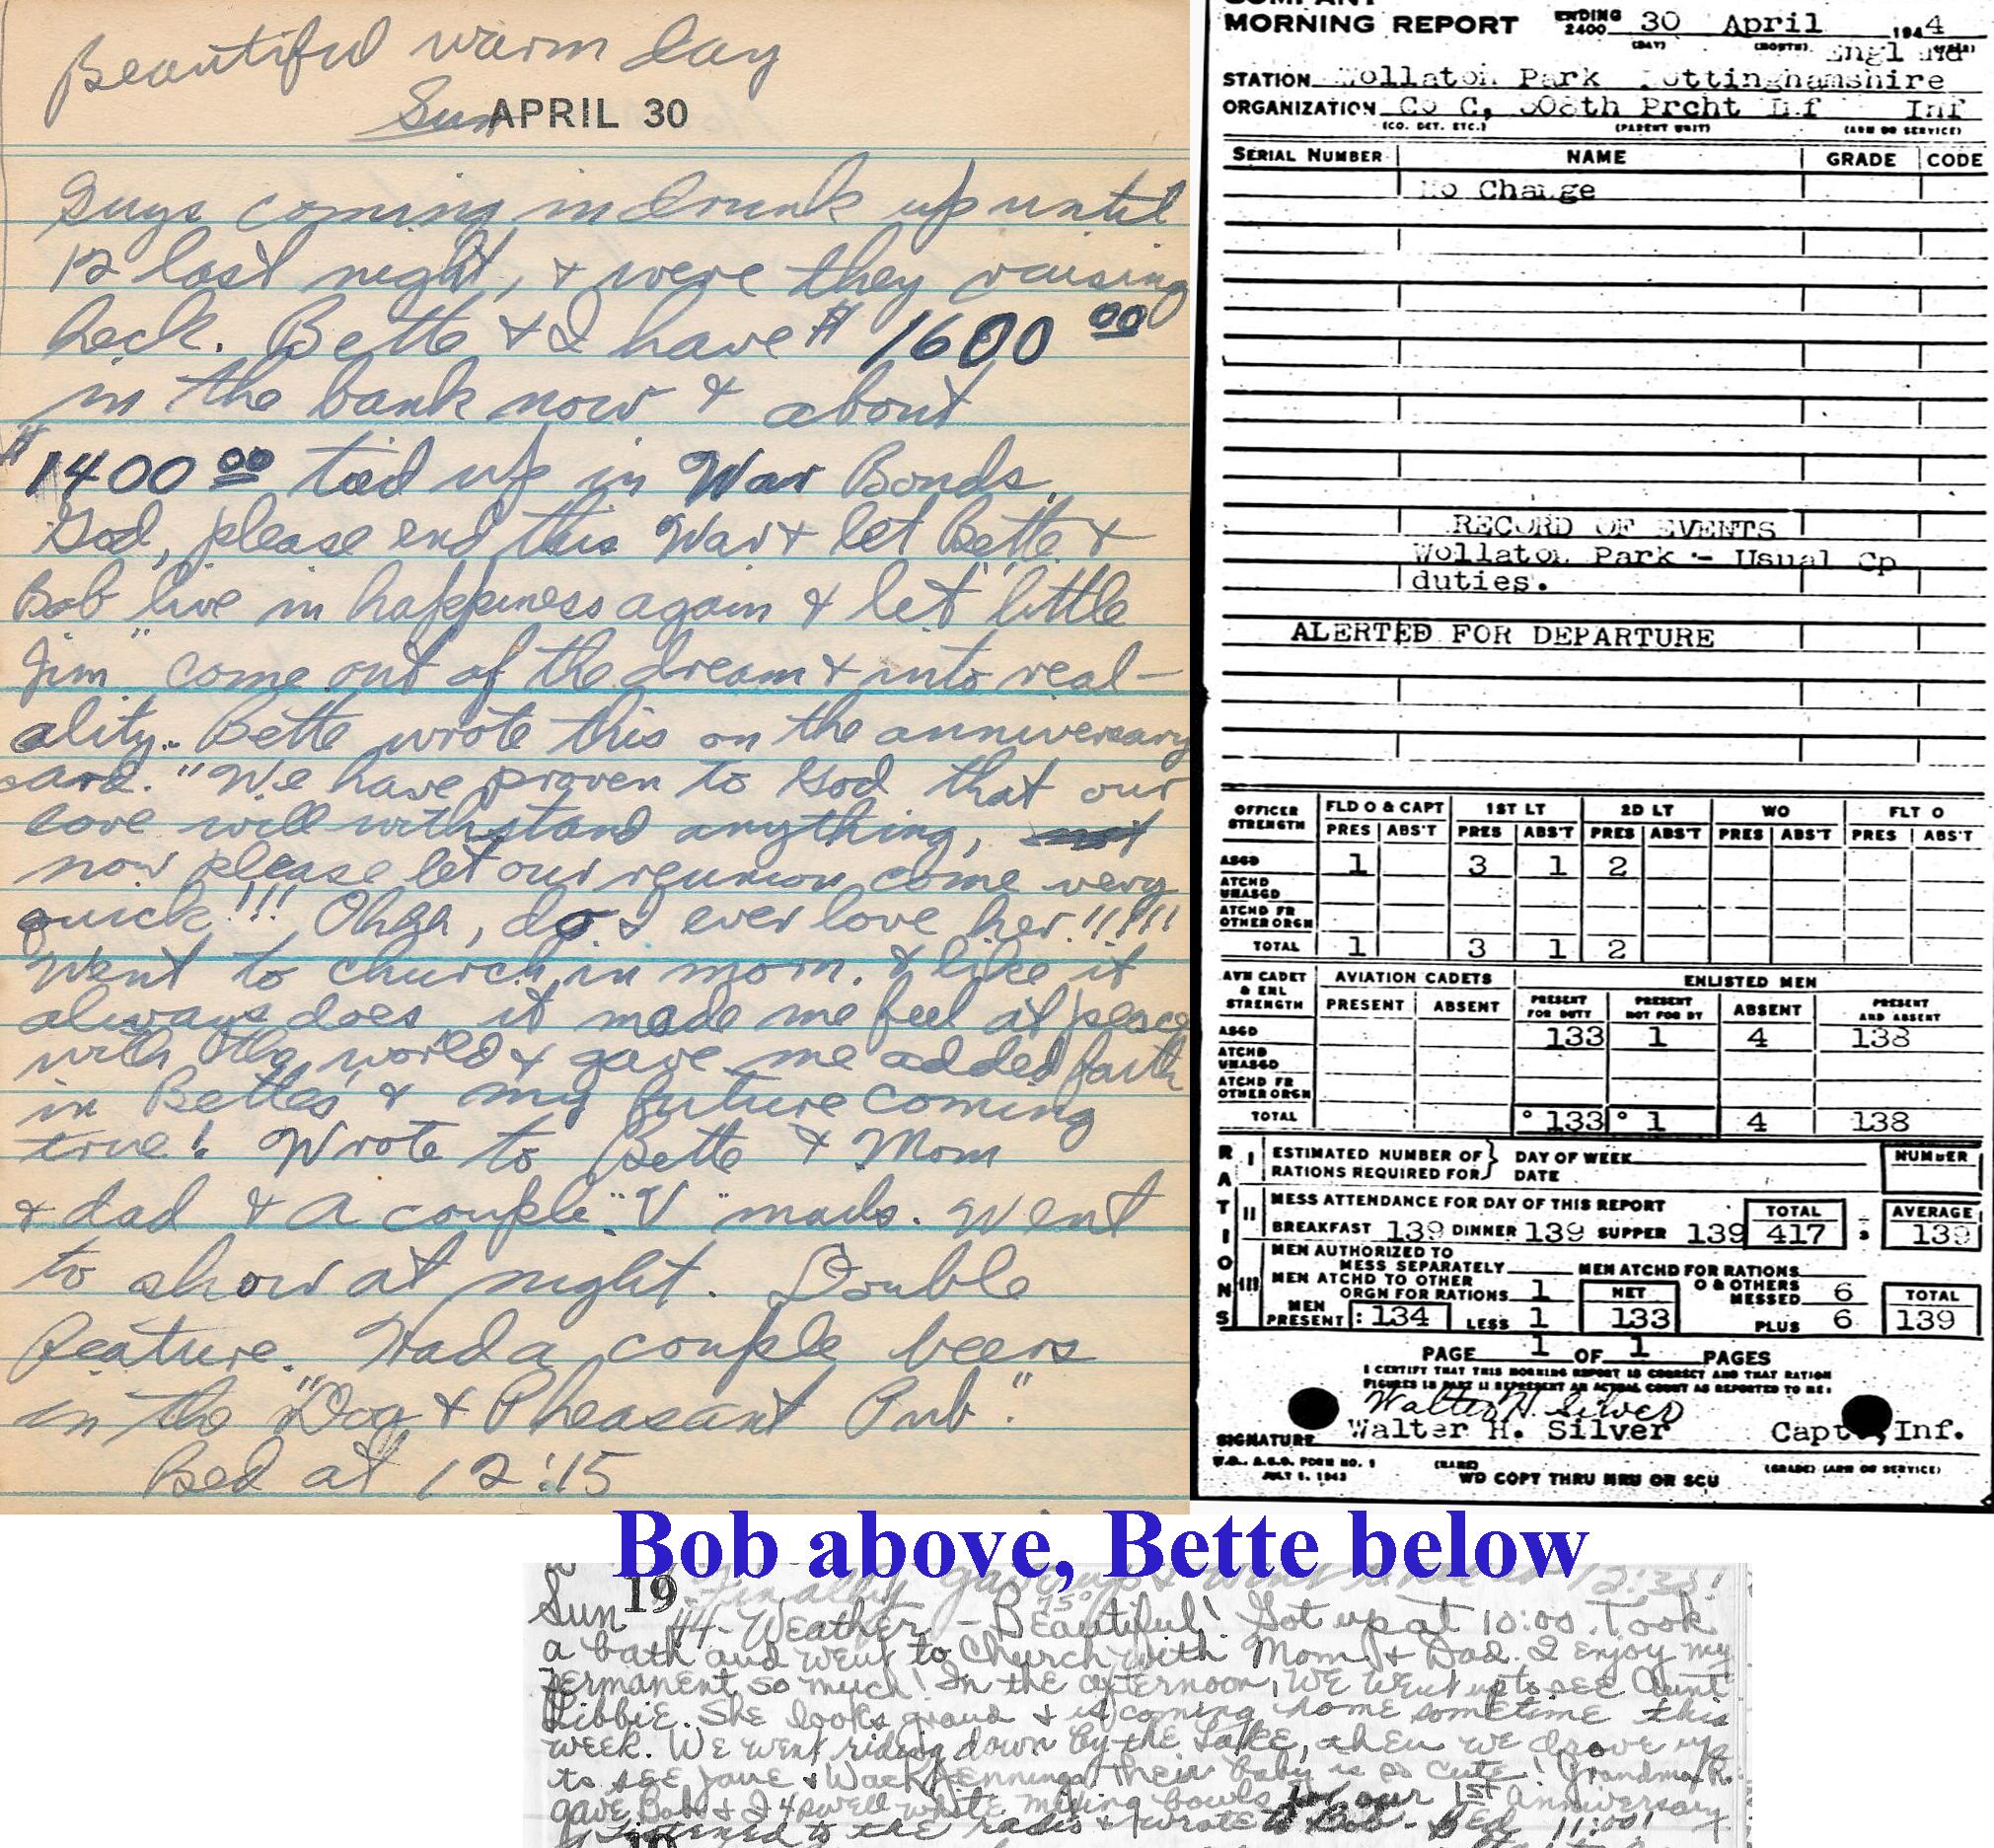 Beautiful warm day
Sun APRIL 30
Guys coming in drunk up until
12 last night, & were they raising
heck. Bette & I have $1600.00
in the bank now & about
$1400.00 tied up in War Bonds.
God, please end this War & let Bette &
Bob live in happiness again & let "little
Jim" come out of the dream & into real-
ality. Bette wrote this on the anniversary
card. "We have proven to God that our
love will withstand anything,
now please let our reunion come very
quick!!! Ohhh, do I ever love her!!!!!
Went to church in morn. & like it
always does, it made me feel at peace
with the world & gave me added faith
in Bette's & my future coming
true! Wrote to Bette & Mom
& dad & a couple "V" mails. Went
to show at night. Double
feature. Had a couple beers
in the "Dog & Pheasant Pub".
Bed at 12:15
COMPANY
MORNING REPORT ENDING 2400 30 April 1944
(DAY) (MONTH) (YEAR)
England
STATION Wollaton Park Nottinghamshire
ORGANIZATION Co C, 508th Prcht Inf Inf
(CO. DET. ETC.) (PARENT UNIT) (ARM OR SERVICE)
SERIAL NUMBER NAME GRADE CODE
No Change
RECORD OF EVENTS
Wollaton Park - Usual Cp
duties.
ALERTED FOR DEPARTURE
OFFICER STRENGTH FLD O & CAPT 1ST LT 2D LT WO FLT O
PRES ABS'T PRES ABS'T PRES ABS'T PRES ABS'T PRES ABS'T
ASGD 1 3 1 2
ATCHD UNASGD
ATCHD FR OTHER ORGN
TOTAL 1 3 1 2
AVN CADET & ENL STRENGTH AVIATION CADETS ENLISTED MEN
PRESENT ABSENT PRESENT FOR DUTY PRESENT NOT FOR DY ABSENT PRESENT AND ABSENT
ASGD 133 1 4 138
ATCHD UNASGD
ATCHD FR OTHER ORGN
TOTAL 133 1 4 138
RATIONS
I ESTIMATED NUMBER OF RATIONS REQUIRED FOR } DAY OF WEEK DATE NUMBER
II MESS ATTENDANCE FOR DAY OF THIS REPORT TOTAL AVERAGE
BREAKFAST 139 DINNER 139 SUPPER 139 417 139
III MEN AUTHORIZED TO MESS SEPARATELY MEN ATCHD FOR RATIONS
MEN ATCHD TO OTHER ORGN FOR RATIONS 1 NET O & OTHERS MESSED 6 TOTAL
MEN PRESENT : 134 LESS 1 133 PLUS 6 139
PAGE 1 OF 1 PAGES
I CERTIFY THAT THIS MORNING REPORT IS CORRECT AND THAT RATION
FIGURES IN PART II REPRESENT AN ACTUAL COUNT AS REPORTED TO ME:
Walter H. Silver
SIGNATURE Walter H. Silver Capt, Inf.
W.D., A.G.O. FORM NO. 1 (NAME) (GRADE) (ARM OR SERVICE)
JULY 1, 1943 WD COPY THRU MRU OR SCU
Bob above, Bette below
Finally gave up & went 12:30!
Sun 19 44 - Weather - Beautiful! 75° Got up at 10:00. Took
a bath and went to Church with Mom & Dad. I enjoy my
permanent so much! In the afternoon, we went up to see Aunt
Libbie. She looks grand & is coming home sometime this
week. We went riding down by the Lake, then we drove up
to see Jane & Wack Jennings. Their baby is so cute! Grandma
gave Bob & I 4 swell white mixing bowls for our 1st Anniversary
Listened to the radio & wrote to Bob - Bed 11:00!